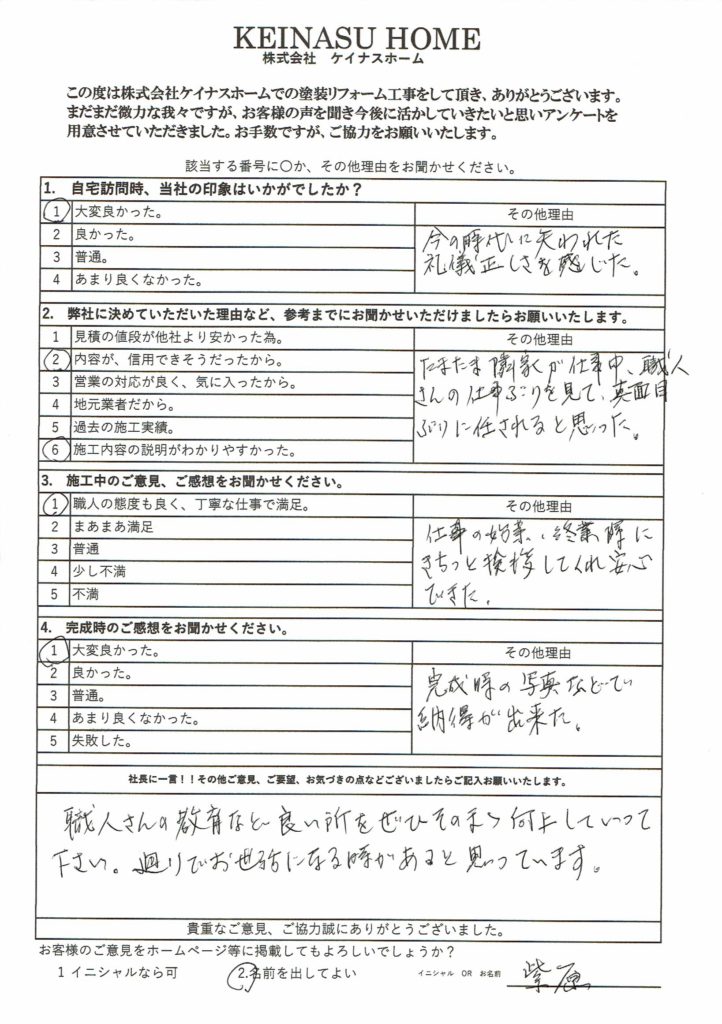 KEINASU HOME
株式会社 ケイナスホーム
この度は株式会社ケイナスホームでの塗装リフォーム工事をして頂き、ありがとうございます。
まだまだ微力な我々ですが、お客様の声を聞き今後に活かしていきたいと思いアンケートを
用意させていただきました。お手数ですが、ご協力をお願いいたします。
該当する番号に〇か、その他理由をお聞かせください。
1. 自宅訪問時、当社の印象はいかがでしたか？
1 大変良かった。
2 良かった。
3 普通。
4 あまり良くなかった。
その他理由
今の時代に失われた
礼儀正しさを感じた。
2. 弊社に決めていただいた理由など、参考までにお聞かせいただけましたらお願いいたします。
1 見積の値段が他社より安かった為。
2 内容が、信用できそうだったから。
3 営業の対応が良く、気に入ったから。
4 地元業者だから。
5 過去の施工実績。
6 施工内容の説明がわかりやすかった。
その他理由
たまたま隣家が仕事中、職人
さんの仕事ぶりを見て、真面目
ぶりに任されると思った。
3. 施工中のご意見、ご感想をお聞かせください。
1 職人の態度も良く、丁寧な仕事で満足。
2 まあまあ満足
3 普通
4 少し不満
5 不満
その他理由
仕事の始業、終業時に
きちっと挨拶してくれ安心
できた。
4. 完成時のご感想をお聞かせください。
1 大変良かった。
2 良かった。
3 普通。
4 あまり良くなかった。
5 失敗した。
その他理由
完成時の写真などで
納得が出来た。
社長に一言！！その他ご意見、ご要望、お気づきの点などございましたらご記入お願いいたします。
職人さんの教育など良い所をぜひそのまゝ向上していって
下さい。廻りでお世話になる時があると思っています。
貴重なご意見、ご協力誠にありがとうございました。
お客様のご意見をホームページ等に掲載してもよろしいでしょうか？
1 イニシャルなら可
2.名前を出してよい
イニシャル OR お名前
紫原